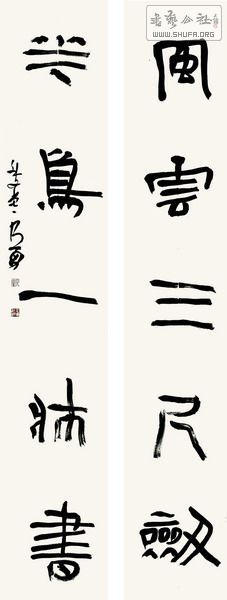 風雲三尺劔
花鳥一牀書
書藝公社
WWW.SHUFA.ORG